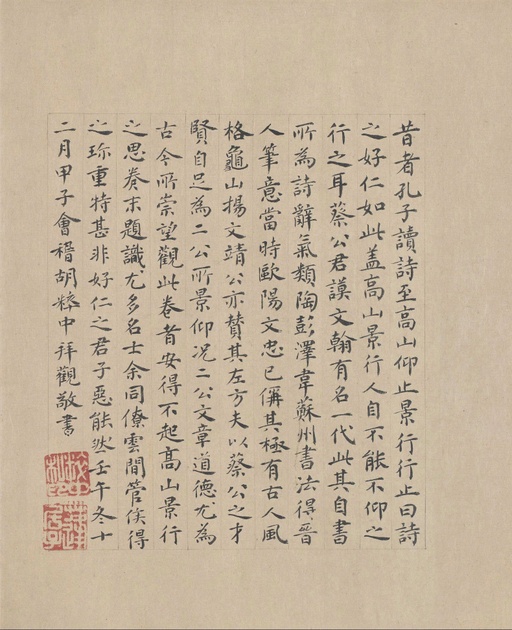 昔者孔子讀詩至高山仰止景行行止曰詩
之好仁如此盖高山景行人自不能不仰之
行之耳蔡公君謨文翰有名一代此其自書
所為詩辭氣類陶彭澤韋蘇州書法得晉
人筆意當時歐陽文忠已偁其極有古人風
格龜山楊文靖公亦賛其左方夫以蔡公之才
賢自足為二公所景仰况二公文章道德尤為
古今所崇望觀此卷者安得不起高山景行
之思卷末題識尤多名士余同僚雲間管侯得
之珎重特甚非好仁之君子惡能然壬午冬十
二月甲子會稽胡粹中拜觀敬書